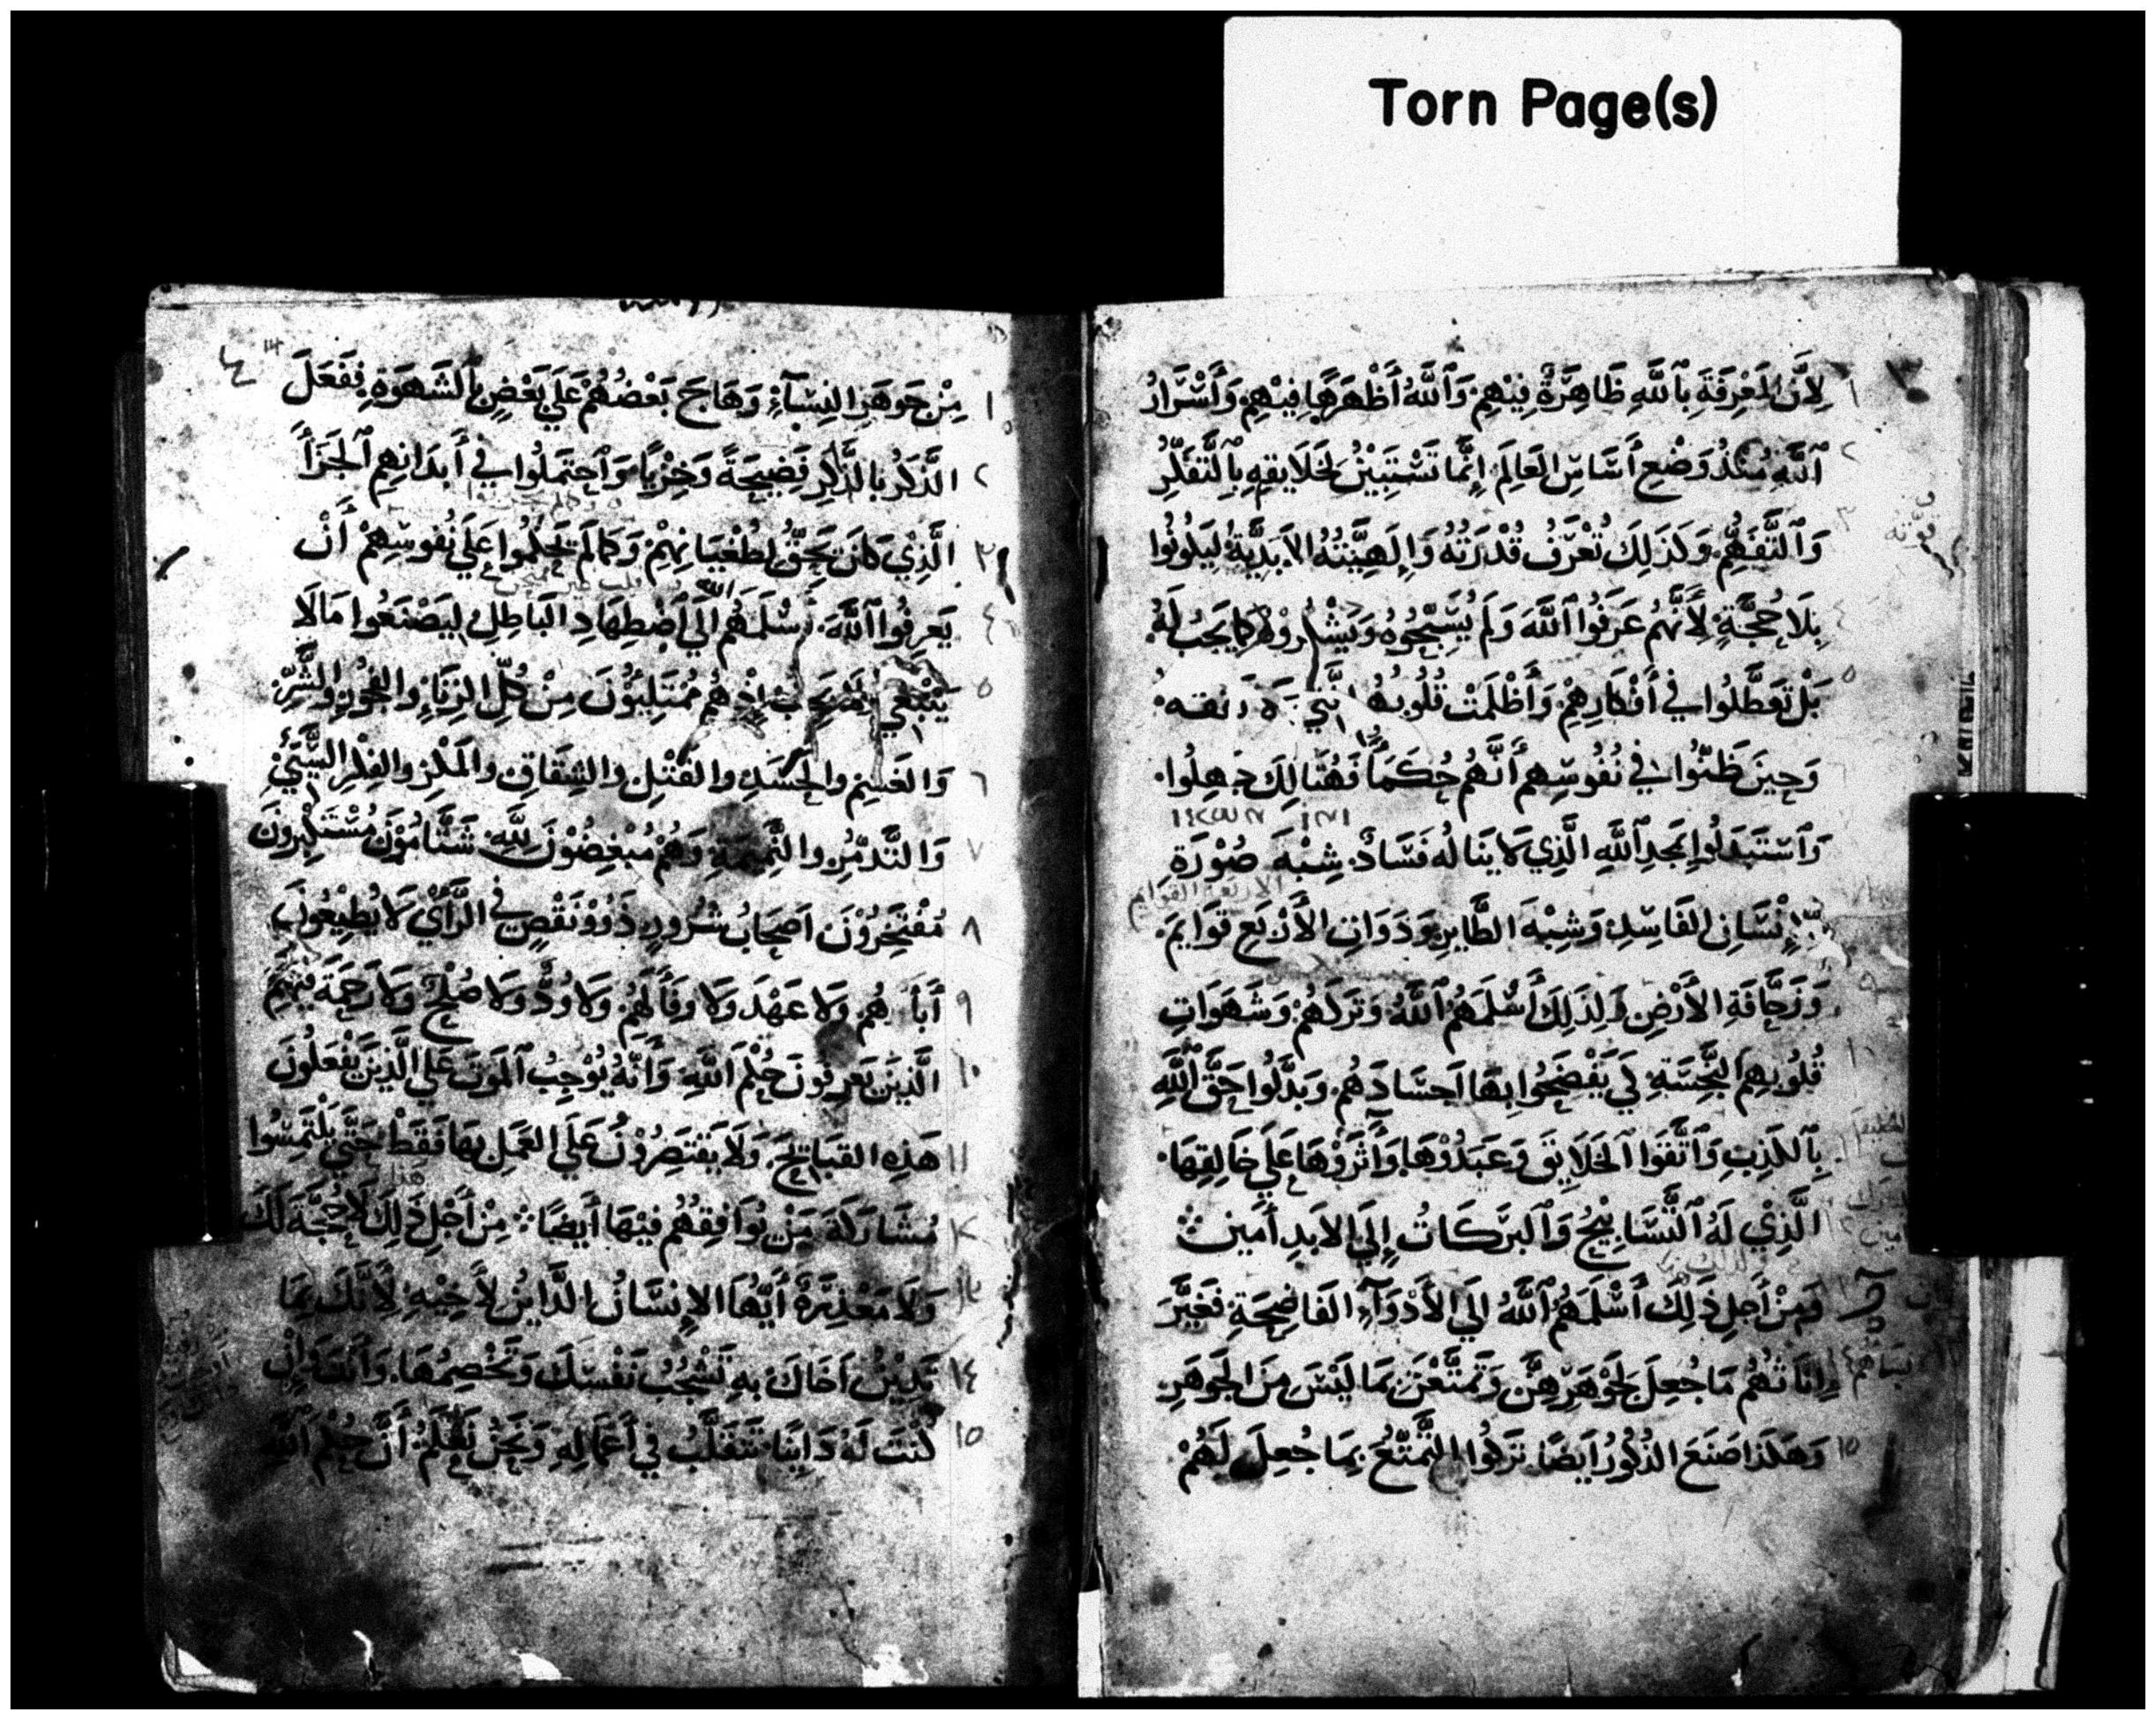 Torn Page(s)
١ لِأَنَّ المَعْرِفَةَ بِٱللَّهِ ظَاهِرَةٌ فِيْهِمْ وَٱللَّهُ أَظْهَرَهَا فِيْهِمْ وَأَسْرَارُ
٢ ٱللَّهِ مُنْذُ وَضْعِ أَسَاسِ العَالِمَ إِنَّمَا تَسْتَبِيْنُ لِخَلَايقِهِ بِٱلتَّفَكُّرِ
٣ وَٱلتَّفَهُّمِ وَكَذَلِكَ تُعْرَفُ قُدْرَتُهُ وَإِلَهِيَّتُهُ الأَبَدِيَّةُ لِيَكُونُوا
٤ بِلَا حُجَّةٍ لأَنَّهُمْ عَرَفُوا ٱللَّهَ وَلَمْ يُسَبِّحُوهُ وَيَشْكُرُوهُ كَمَا يَجِبُ لَهُ
٥ بَلْ تَعَطَّلُوا فِي أَفْكَارِهِمْ وَأَظْلَمَتْ قُلُوبُهُمْ
٦ وَحِينَ ظَنُّوا فِي نُفُوسِهِم أَنَّهُم حُكَمَاً فَهُنَالِكَ جَهِلُوا
٧ وَٱسْتَبْدَلُوا بِمَجدِ ٱللَّهِ الَّذِي لَا يَنَالُهُ فَسَادٌ شِبْهَ صُوْرَةِ
الاربعة القوايم
٨ إِنْسَانِ الفَاسِدِ وَشِبْهَ الطَّايرِ وَذَوَاتِ الأَرْبَعِ قَوَايمَ
وَزَحَّافَةِ الأَرْضِ وَلِذَلِكَ أَسْلَمَهُمُ ٱللَّهُ وَتَرَكَهُمْ وَشَهَوَاتِ
١٠ قُلُوبِهِمِ النَّجِسَةِ لِكَي يَفْضَحُوا بِهَا اَجسَادَهُم وَبَدَّلُوا حَقَّ ٱللَّهِ
١١ بِٱلكَذِبِ وَٱتَّقَوَا ٱلخَلَايقَ وَعَبَدُوْهَا وَآثَرُوْهَا عَلَي خَالِقِهَا
١٢ الَّذِيْ لَهُ ٱلتَّسَابِيْحُ وَٱلبَرَكَاتُ إِلَي الأَبَدِ أَمِين
وَمِنْ أَجلِ ذَلِكَ أَسْلَمَهُمُ ٱللَّهُ إِلَي الأَدْوَآءِ الفَاضِحَةِ فَغَيَّرَ
١٤ إِنَاثُهُمْ مَا جُعِلَ لِجَوْهَرِهِنَّ وَتَمَتَّعْنَ بِمَا لَيْسَ مِنَ الجَوهَرِ
١٥ وَهَكَذَا صَنَعَ الذُكُورُ أَيضًا تَرَكُوا التَّمَتُّعَ بِمَا جُعِلَ لَهُمْ
١ مِنْ جَوهَرِ النِسَآءِ وَهَاجَ بَعْضُهُمْ عَلَي بَعْضٍ بِالشَهوَةِ فَفَعَلَ
٢ الذَّكَرُ بِالذَّكِرِ فَضِيحَةً وَخِزْيًا وَاَحتَمَلُوا فِي أَبدَانِهِمِ ٱلجَزَأَ
٣ الَّذِيْ كَانَ يَحَقُّ لِطُغْيَانِهِمْ وَكَمَا لَمْ يَحكُمُوا عَلَي نُفُوسِهِمْ أَنْ
٤ يَعرِفُوا ٱللَّهَ أَسْلَمَهُم اللَّه إِلَي أَضْطِهَادِ البَاطِلِ لِيَصْنَعُوا مَا لَا
٥ يَنْبَغِي إِذْ هُم مُمْتَلِئُوْنَ مِنْ كُلِّ الزِنَاءِ والفُجُورِ والشَّرِّ
٦ وَالغَشِمِ والحَسَدِ والقَتْلِ والشِقَاقِ والمَكْرِ والفِكْرِ السَّيِّئِ
٧ وَالتَّذَمُّرِ والنَّمِيمَةِ وَهُمْ مُبْغِضُوْنَ لِلَّهِ شَتَّامُوْنَ مُسْتَكبِرُونَ
٨ مُفْتَخِرُوْنَ اَصحَابُ شُرُورٍ ذَوُوْ نَقْصٍ فِي الرَّأْيِ لَا يُطِيْعُونَ
٩ أَبَآءَهُم وَلَا عَهْدَ وَلَا وفَآءَ لَهُمْ وَلَا وُدُّ وَلَا صُلْحَ وَلَا رَحمَةَ فِيْهِمْ
١٠ الَّذِينَ يَعرِفُونَ حُكْمَ ٱللَّهِ وَأَنَّهُ يُوْجِبُ ٱلمَوتَ عَلَي الَّذِينَ يَفْعَلُونَ
١١ هَذِهِ القَبَائِحَ وَلَا يَقْتَصِرُوْنَ عَلَي العَمَلِ بِهَا فَقَطْ حَتَّي يَلْتَمِسُوا
١٢ مُشَارَكَةَ مَنْ يُوَافِقُهُمْ فِيْهَا أَيضًا مِنْ أَجلِ ذَلِكَ لَا حُجَّةَ لَكَ
١٣ وَلَا مَعْذِرَةَ أَيُّهَا الإِنسَانُ الدَّايِنُ لأَخِيْهِ لأَنَّكَ بِمَا
١٤ تَدِيْنُ اَخَاكَ بِهِ تَشْجُبُ نَفْسَكَ وَتَخْصِمُهَا وَأَنْتَ وَإِنْ
١٥ كُنْتَ لَهُ دَايِنًا تَتَقَلَّبُ فِي أَعمَالِهِ وَنَحْنُ نَعْلَمُ أَنَّ حُكْمَ ٱللَّهِ